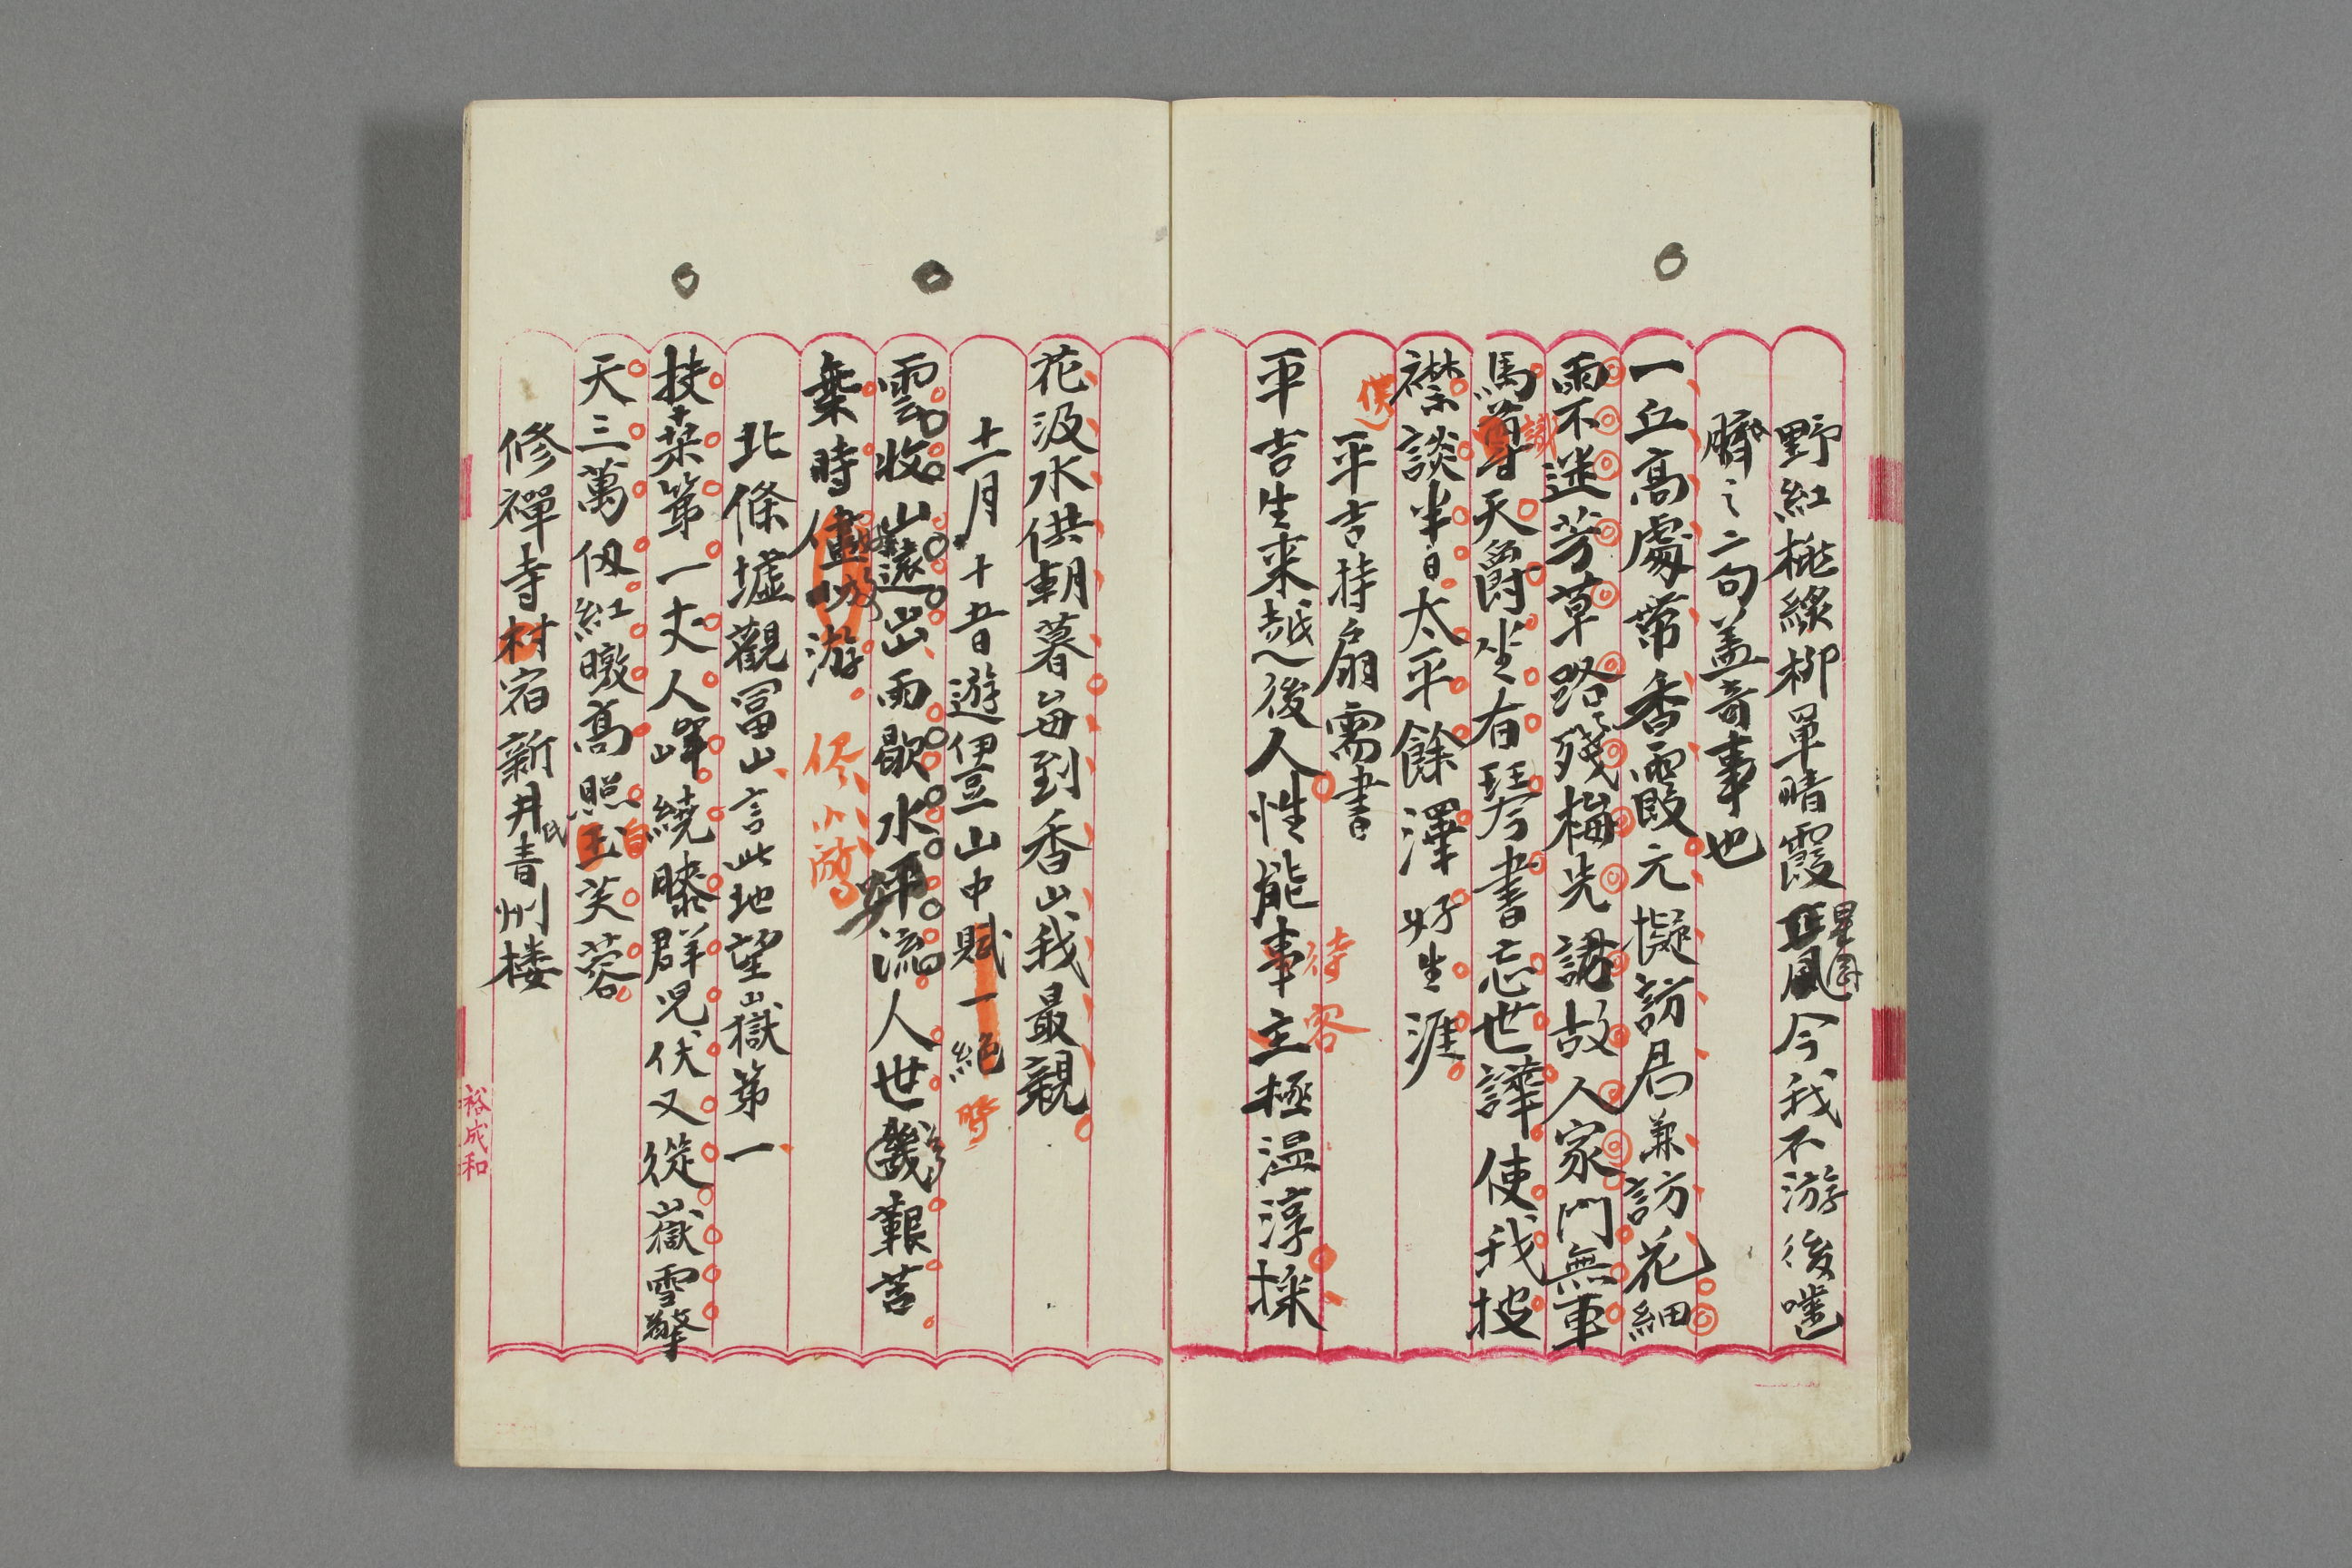 野紅桃綠柳單晴霞今我不游後噬
臍之二句蓋音事也
一丘高處帶香霞元擬訪君兼訪花細
雨不迷芳草路殘梅先認故人家門無車
馬尊天爵坐有琴書忘世譁使我披
襟談半日太平餘澤好生涯
僕
平吉持扇需書
待容
平吉生來越後人性能事主極温淳採
花汲水供朝暮每到香山我最親
十一月十五日遊伊豆山中賦一絶
時
雲收山遠雨歇水流人世幾艱苦
棄時儘游
北條墟觀冨山言此地望嶽第一
扶桒第一丈人峰繞膝群児伏又從嶽雪擎
天三萬仭紅暾髙照玉芙蓉
自
修禪寺村宿新井氏青州楼
裕成和